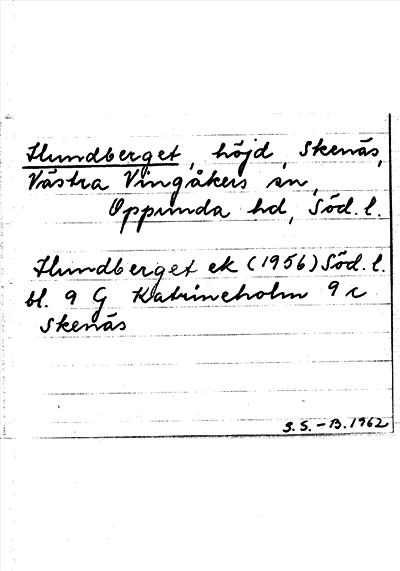 Hundberget, höjd, Skenäs,
Västra Vingåkers sn,
Oppunda hd, Söd. l.
Hundberget ek (1956) Söd. l.
bl. 9 G Katrineholm 9 c
Skenäs
S. S. - B. 1962